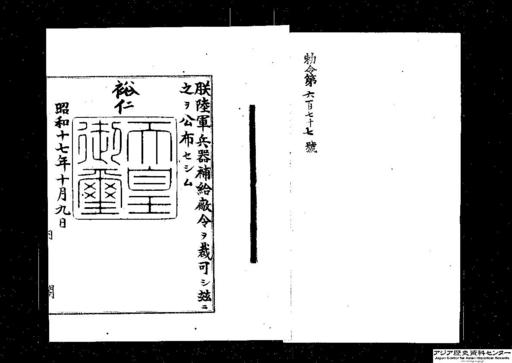 勅令第六百七十七號
朕陸軍兵器補給廠令ヲ裁可シ玆ニ
之ヲ公布セシム
裕仁
天皇御璽
昭和十七年十月九日
内閣
アジア歴史資料センター
Japan Center for Asian Historical Records